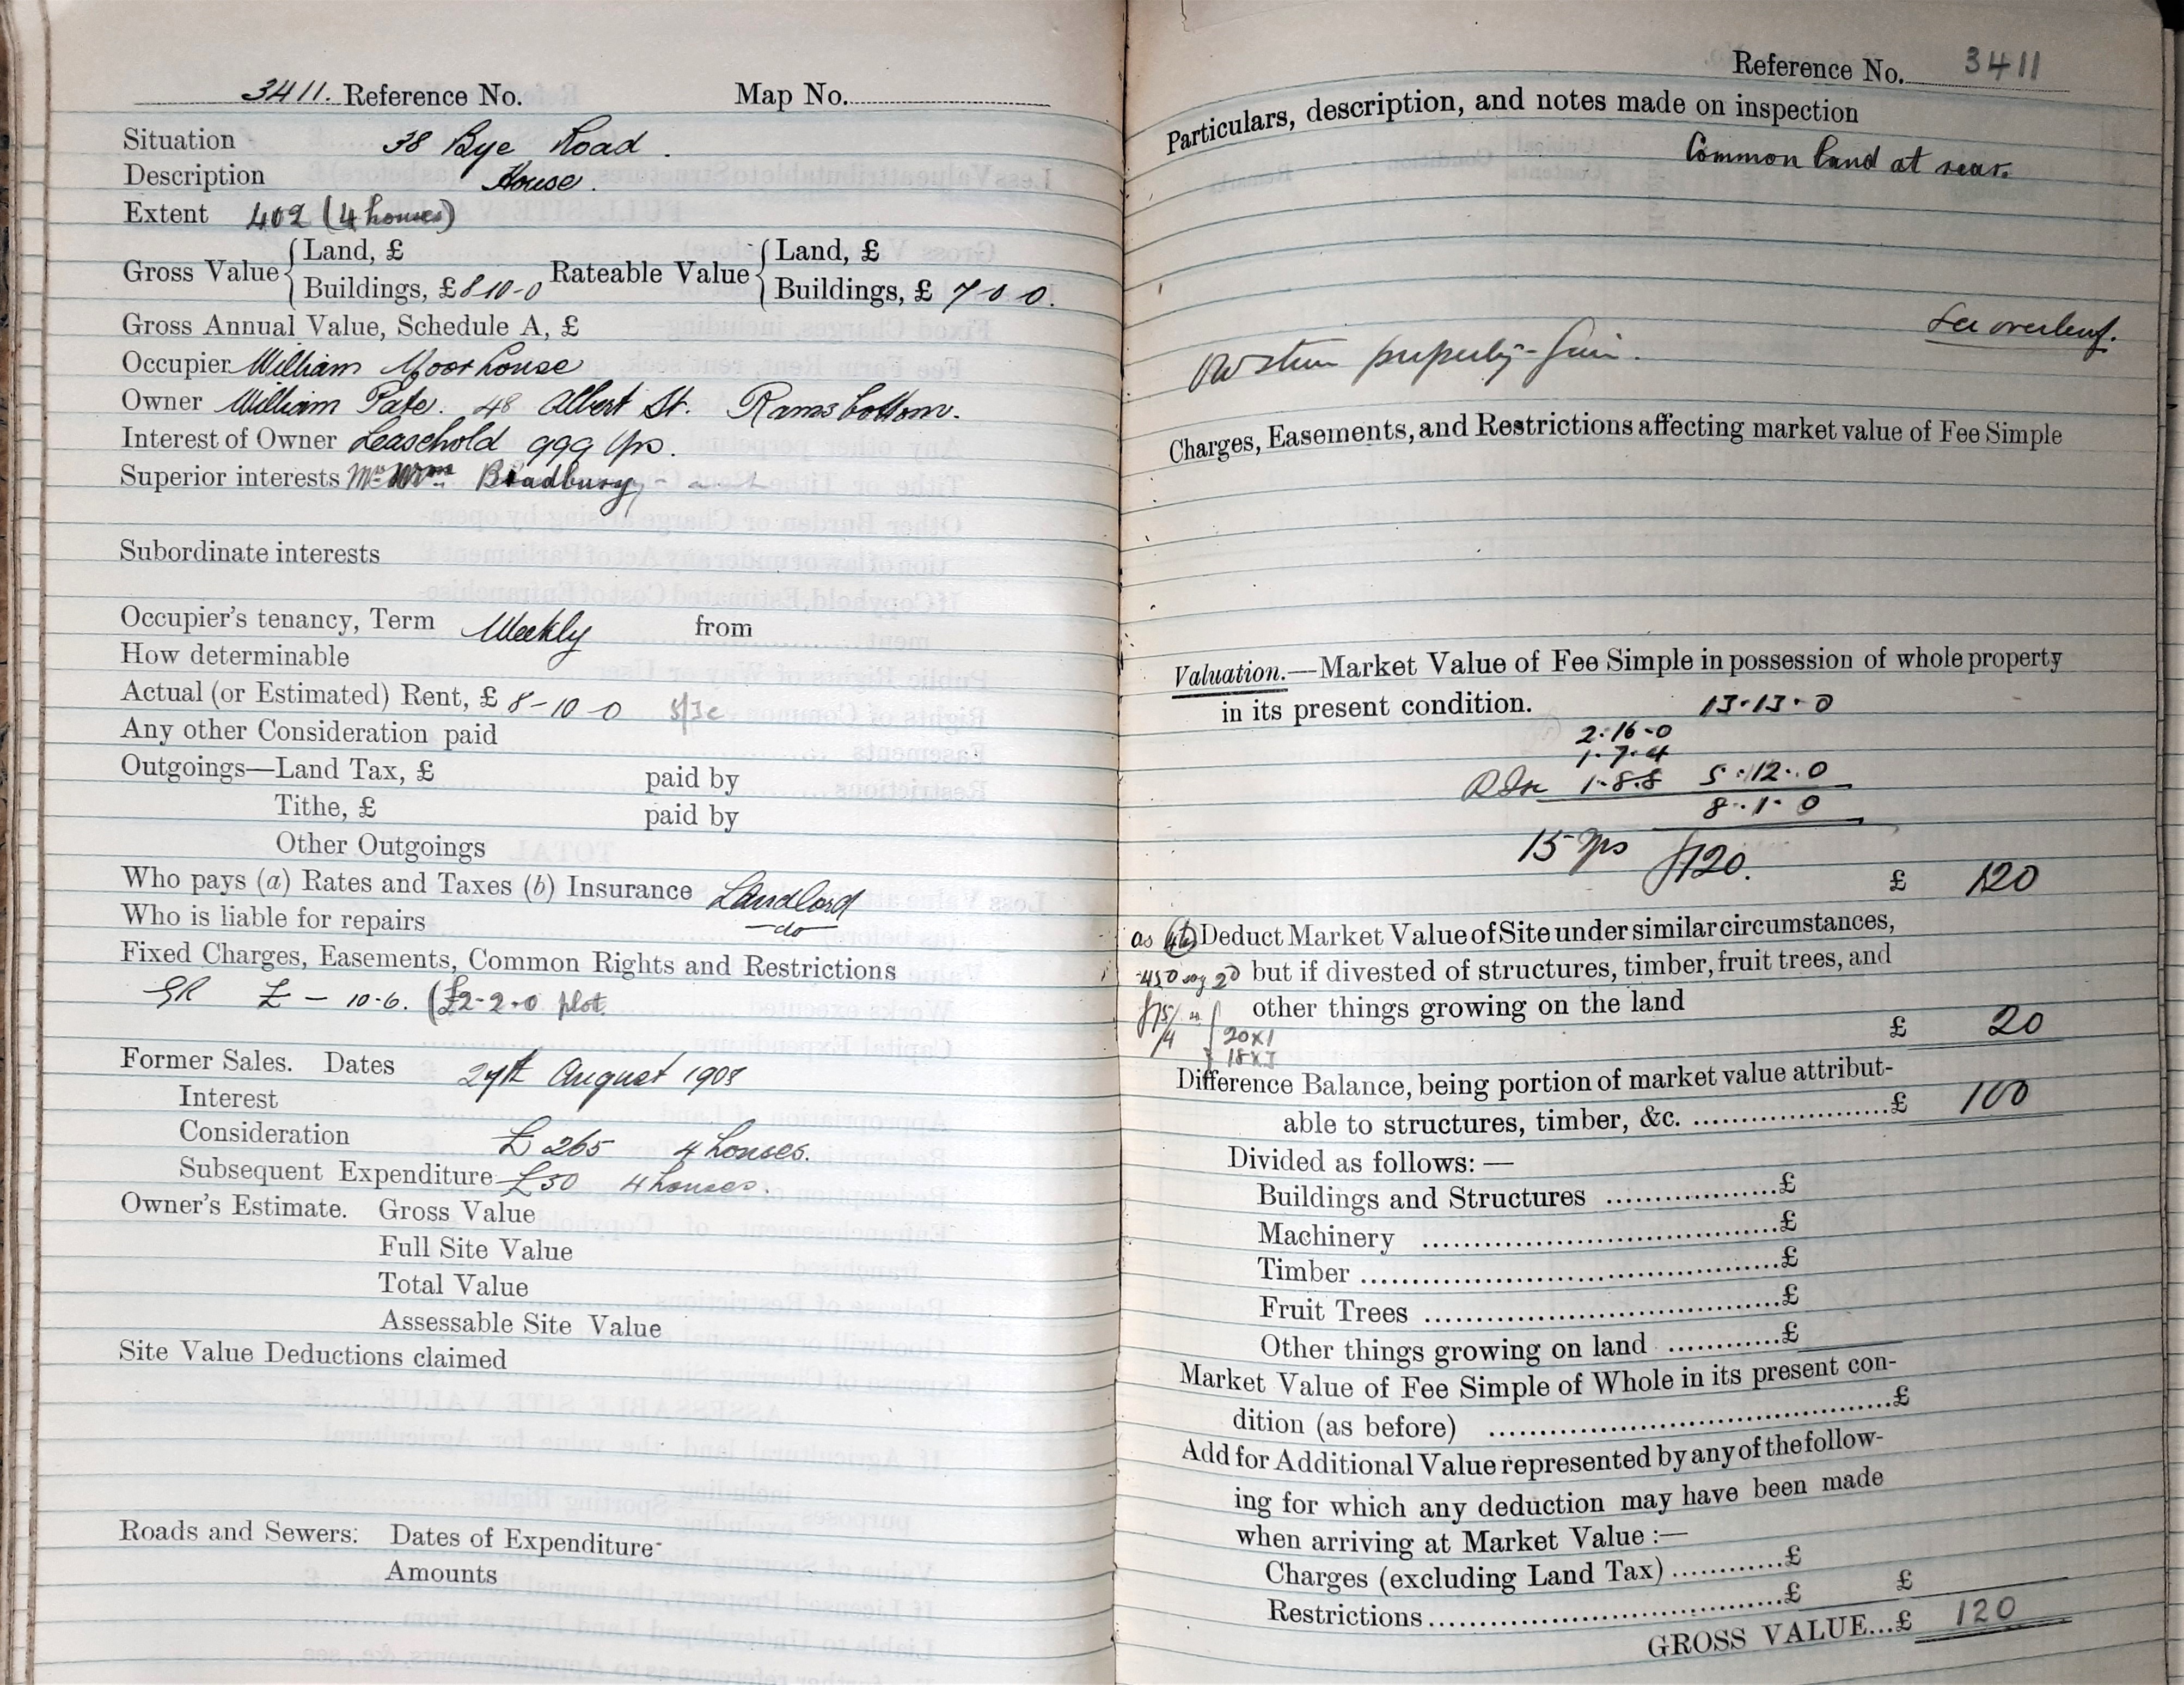 3411. Reference No. Map No.
Situation 38 Bye Road.
Description House.
Extent 402 (4 houses)
Gross Value { Land, £ Rateable Value { Land, £
Buildings, £ 8-10-0 Buildings, £ 7-0-0.
Gross Annual Value, Schedule A, £
Occupier William Moorhouse
Owner William Pate. 48 Albert St. Ramsbottom.
Interest of Owner Leasehold 999 yrs.
Superior interests Bradbury
Subordinate interests
Occupier's tenancy, Term Weekly from
How determinable
Actual (or Estimated) Rent, £ 8-10-0
Any other Consideration paid
Outgoings—Land Tax, £ paid by
Tithe, £ paid by
Other Outgoings
Who pays (a) Rates and Taxes (b) Insurance Landlord
Who is liable for repairs —do—
Fixed Charges, Easements, Common Rights and Restrictions
GR £ — 10-6. (£2-2-0 plot.
Former Sales. Dates August
Interest
Consideration £265 4 houses.
Subsequent Expenditure £50 4 houses.
Owner's Estimate. Gross Value
Full Site Value
Total Value
Assessable Site Value
Site Value Deductions claimed
Roads and Sewers: Dates of Expenditure
Amounts
Reference No. 3411
Particulars, description, and notes made on inspection
Common land at rear.
See overleaf.
property - fair.
Charges, Easements, and Restrictions affecting market value of Fee Simple
Valuation.—Market Value of Fee Simple in possession of whole property
in its present condition. 13-13-0
2-16-0
1-7-4
1-8-8 5-12-0
8-1-0
15 yrs £120.
£ 120
as Deduct Market Value of Site under similar circumstances,
but if divested of structures, timber, fruit trees, and
other things growing on the land
£ 20
20x1
Difference Balance, being portion of market value attribut-
able to structures, timber, &c. ....................£ 100
Divided as follows:—
Buildings and Structures ..................£
Machinery ......................................£
Timber .............................................£
Fruit Trees .......................................£
Other things growing on land ...........£
Market Value of Fee Simple of Whole in its present con-
dition (as before) ..........................................£
Add for Additional Value represented by any of the follow-
ing for which any deduction may have been made
when arriving at Market Value:—
Charges (excluding Land Tax) ............£
Restrictions .......................................£ £
GROSS VALUE...£ 120